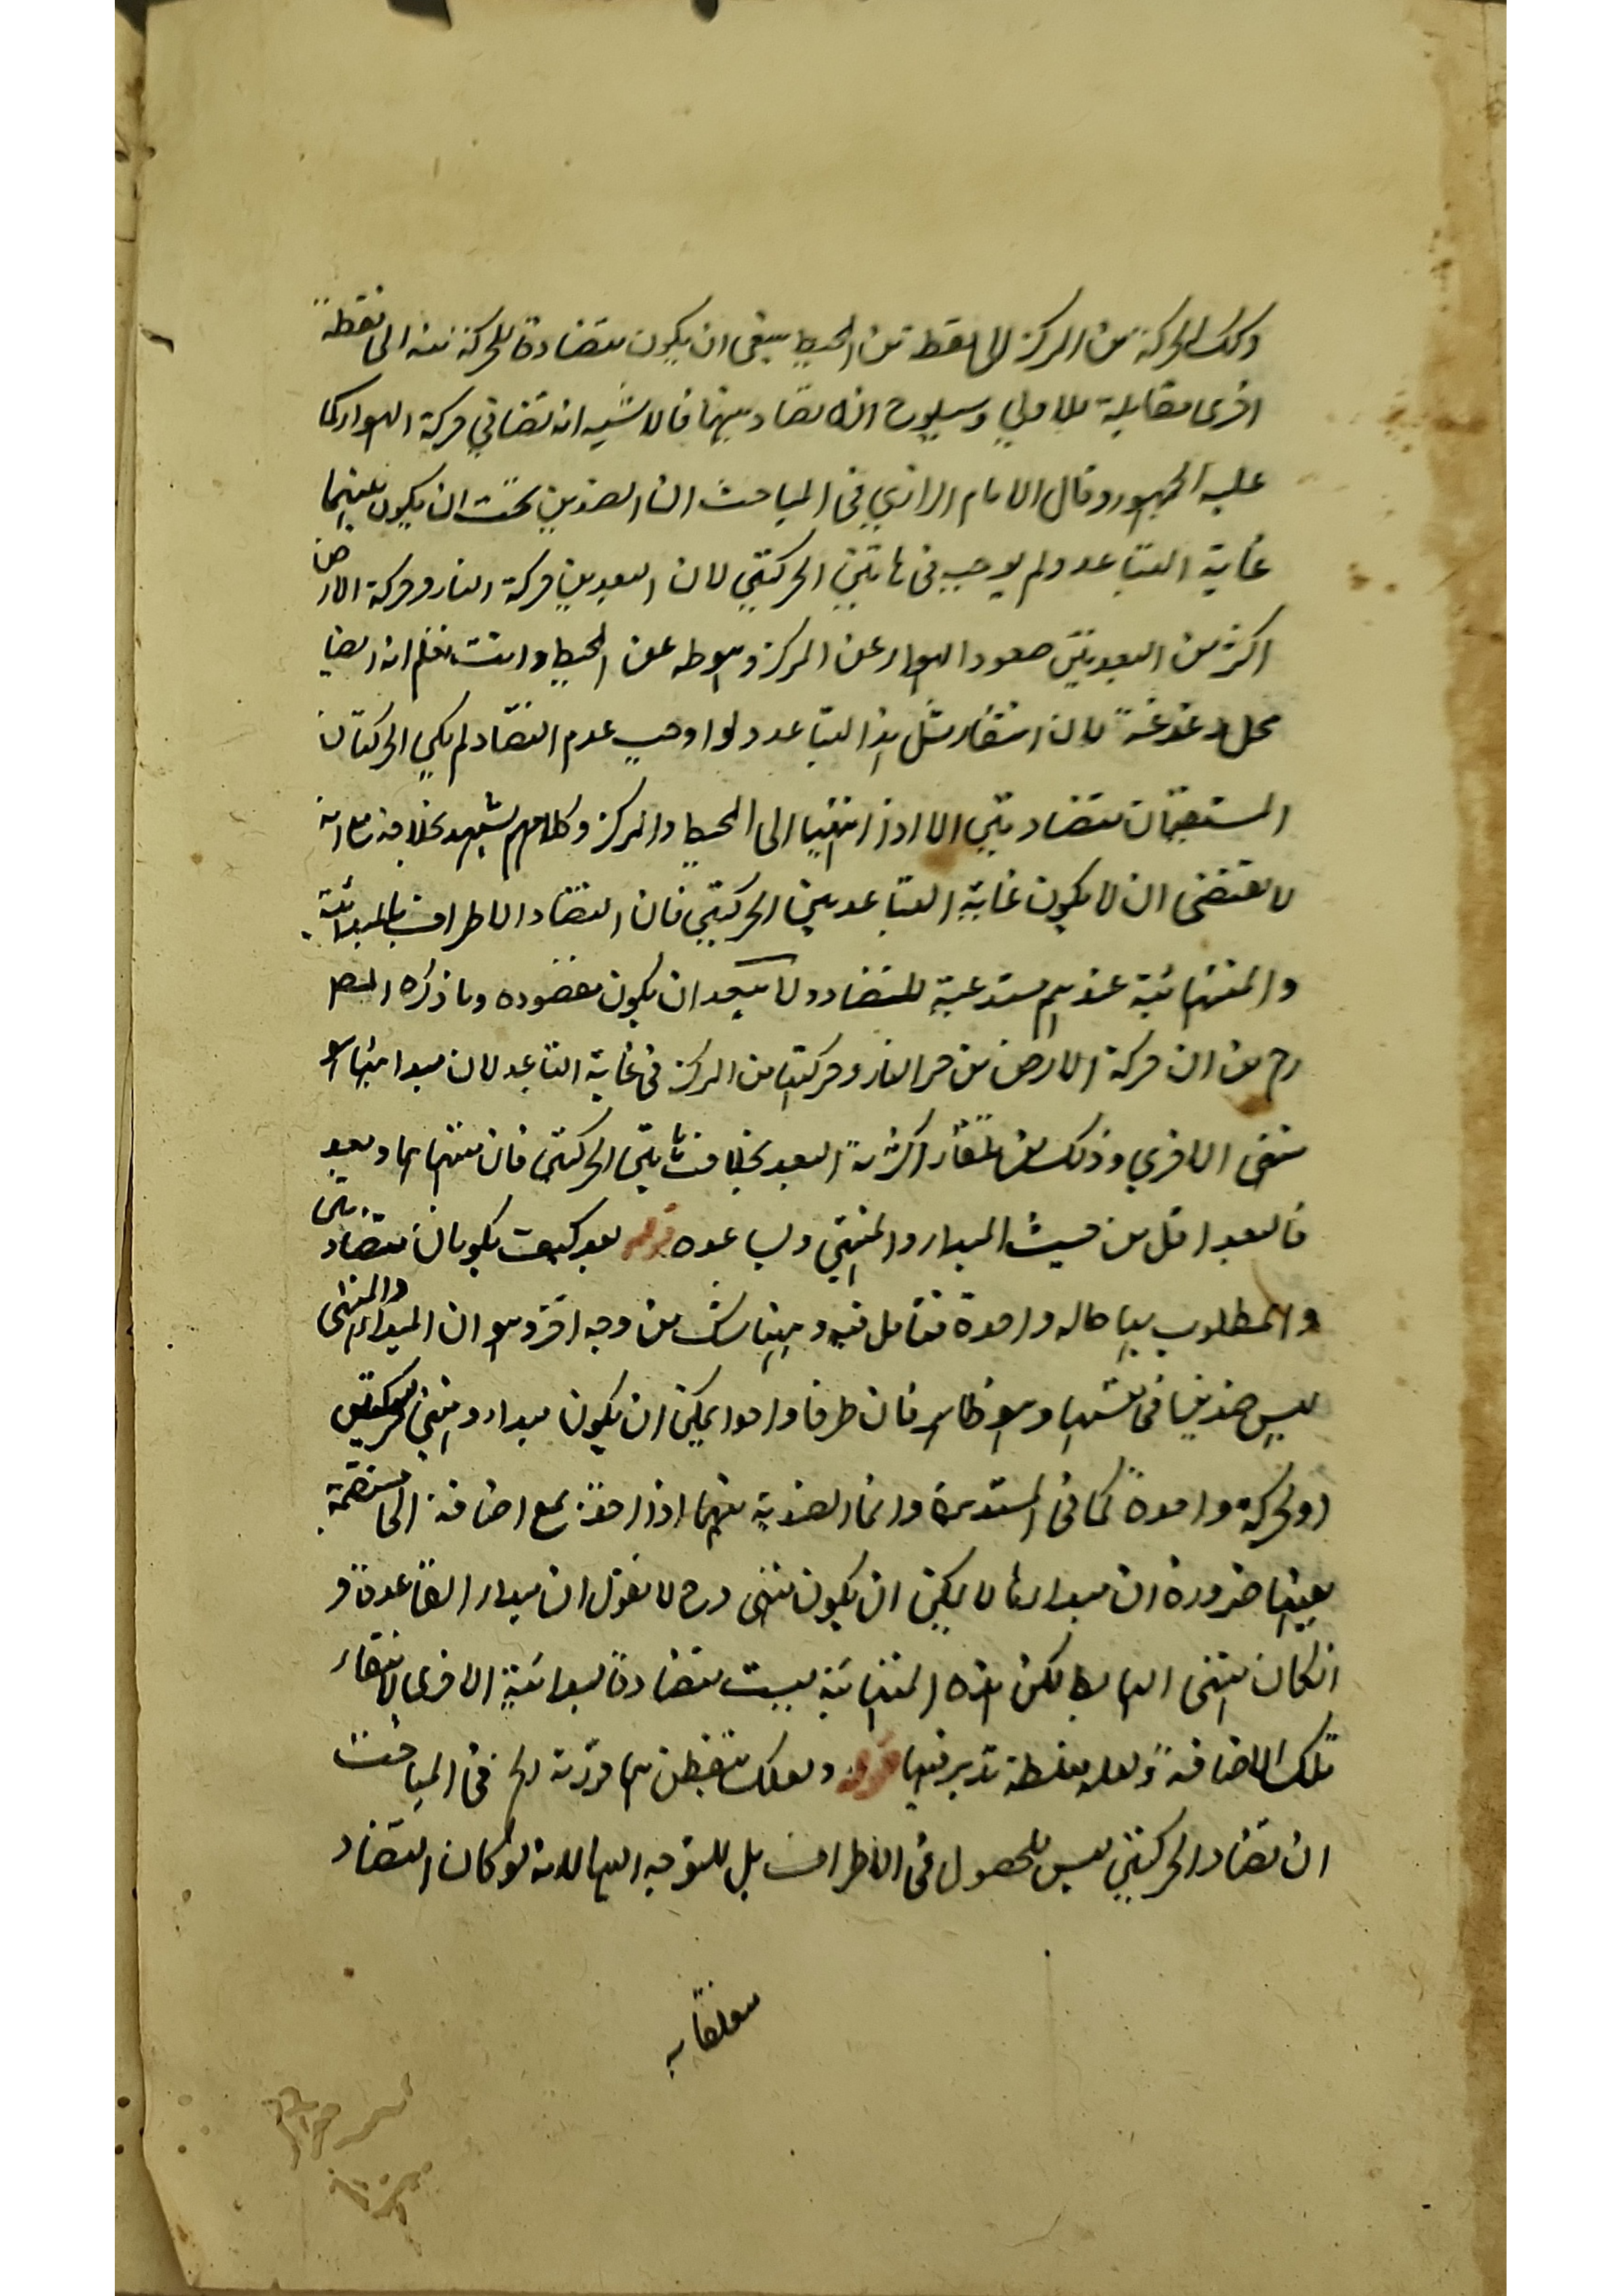 وكك الحركة من المركز الى نقطة من المحيط ينبغي ان يكون متضادة للحركة منه الى نقطة
اخرى مقابلة للاولي وسيلوح انه لا تضاد بينهما فالاشبه انه تضاد في حركة الهواء كما
عليه الجمهور وقال الامام الرازي في المباحث ان الضدين يجب ان يكون بينهما
غاية التباعد ولم يوجب في هاتين الحركتين لان البعد بين حركة النار وحركة الارض
اكثر من البعد بين صعود الهواء عن المركز وهبوطه عن المحيط وانت تعلم انه ايضا
محل دغدغة لان انتفاء مثل هذا التباعد ولو اوجب عدم التضاد لم يكن الحركتان
المستقيمتان متضادتين الا اذا انتهيا الى المحيط والمركز وكلامهم يشهد بخلافه مع انه
لا يقتضى ان لا يكون غاية التباعد بين الحركتين فان التضاد الاطراف بالمبدائية
والمنتهائية عندهم مستدعية للتضاد ولا يبعد ان يكون مقصوده وما ذكره المص
رح من ان حركة الارض من حر النار وحركتها من المركز في غاية التباعد لان مبدا منهما هو
منتهى الاخرى وذلك من اكثرية البعد بخلاف هاتين الحركتين فان منتهاهما وبعد
فالبعد اقل من حيث المبداء والمنتهى ولساعده قوله بعد كيف يكونان متضادتين
والمطلوب بهما حاله واحدة فتامل فيه وههنا شك من وجه اخر وهو ان المبداء والمنتهى
ليس ضدين في نفسهما وهو ظاهر فان طرفا واحدا يمكن ان يكون مبداء ومنتهى لحركتين
او لحركة واحدة كما في المستديرة وانما الضدية بينهما اذا اخذ مع اضافة الى مستقيمة
بعينها ضرورة ان مبداءها لا يمكن ان يكون منتهى وح لا نقول ان مبداء الصاعدة و
ان كان منتهى الهابطة لكن هذه المنتهائية ليست متضادة لمبدائية الاخرى لانتفاء
تلك الاضافة ولعله مغلطة تدبر فيها قوله ولعلك تتفطن مما قررته الخ في المباحث
ان تضاد الحركتين ليس للحصول في الاطراف بل للتوجه اليها لانه لو كان التضاد
متعلقا به